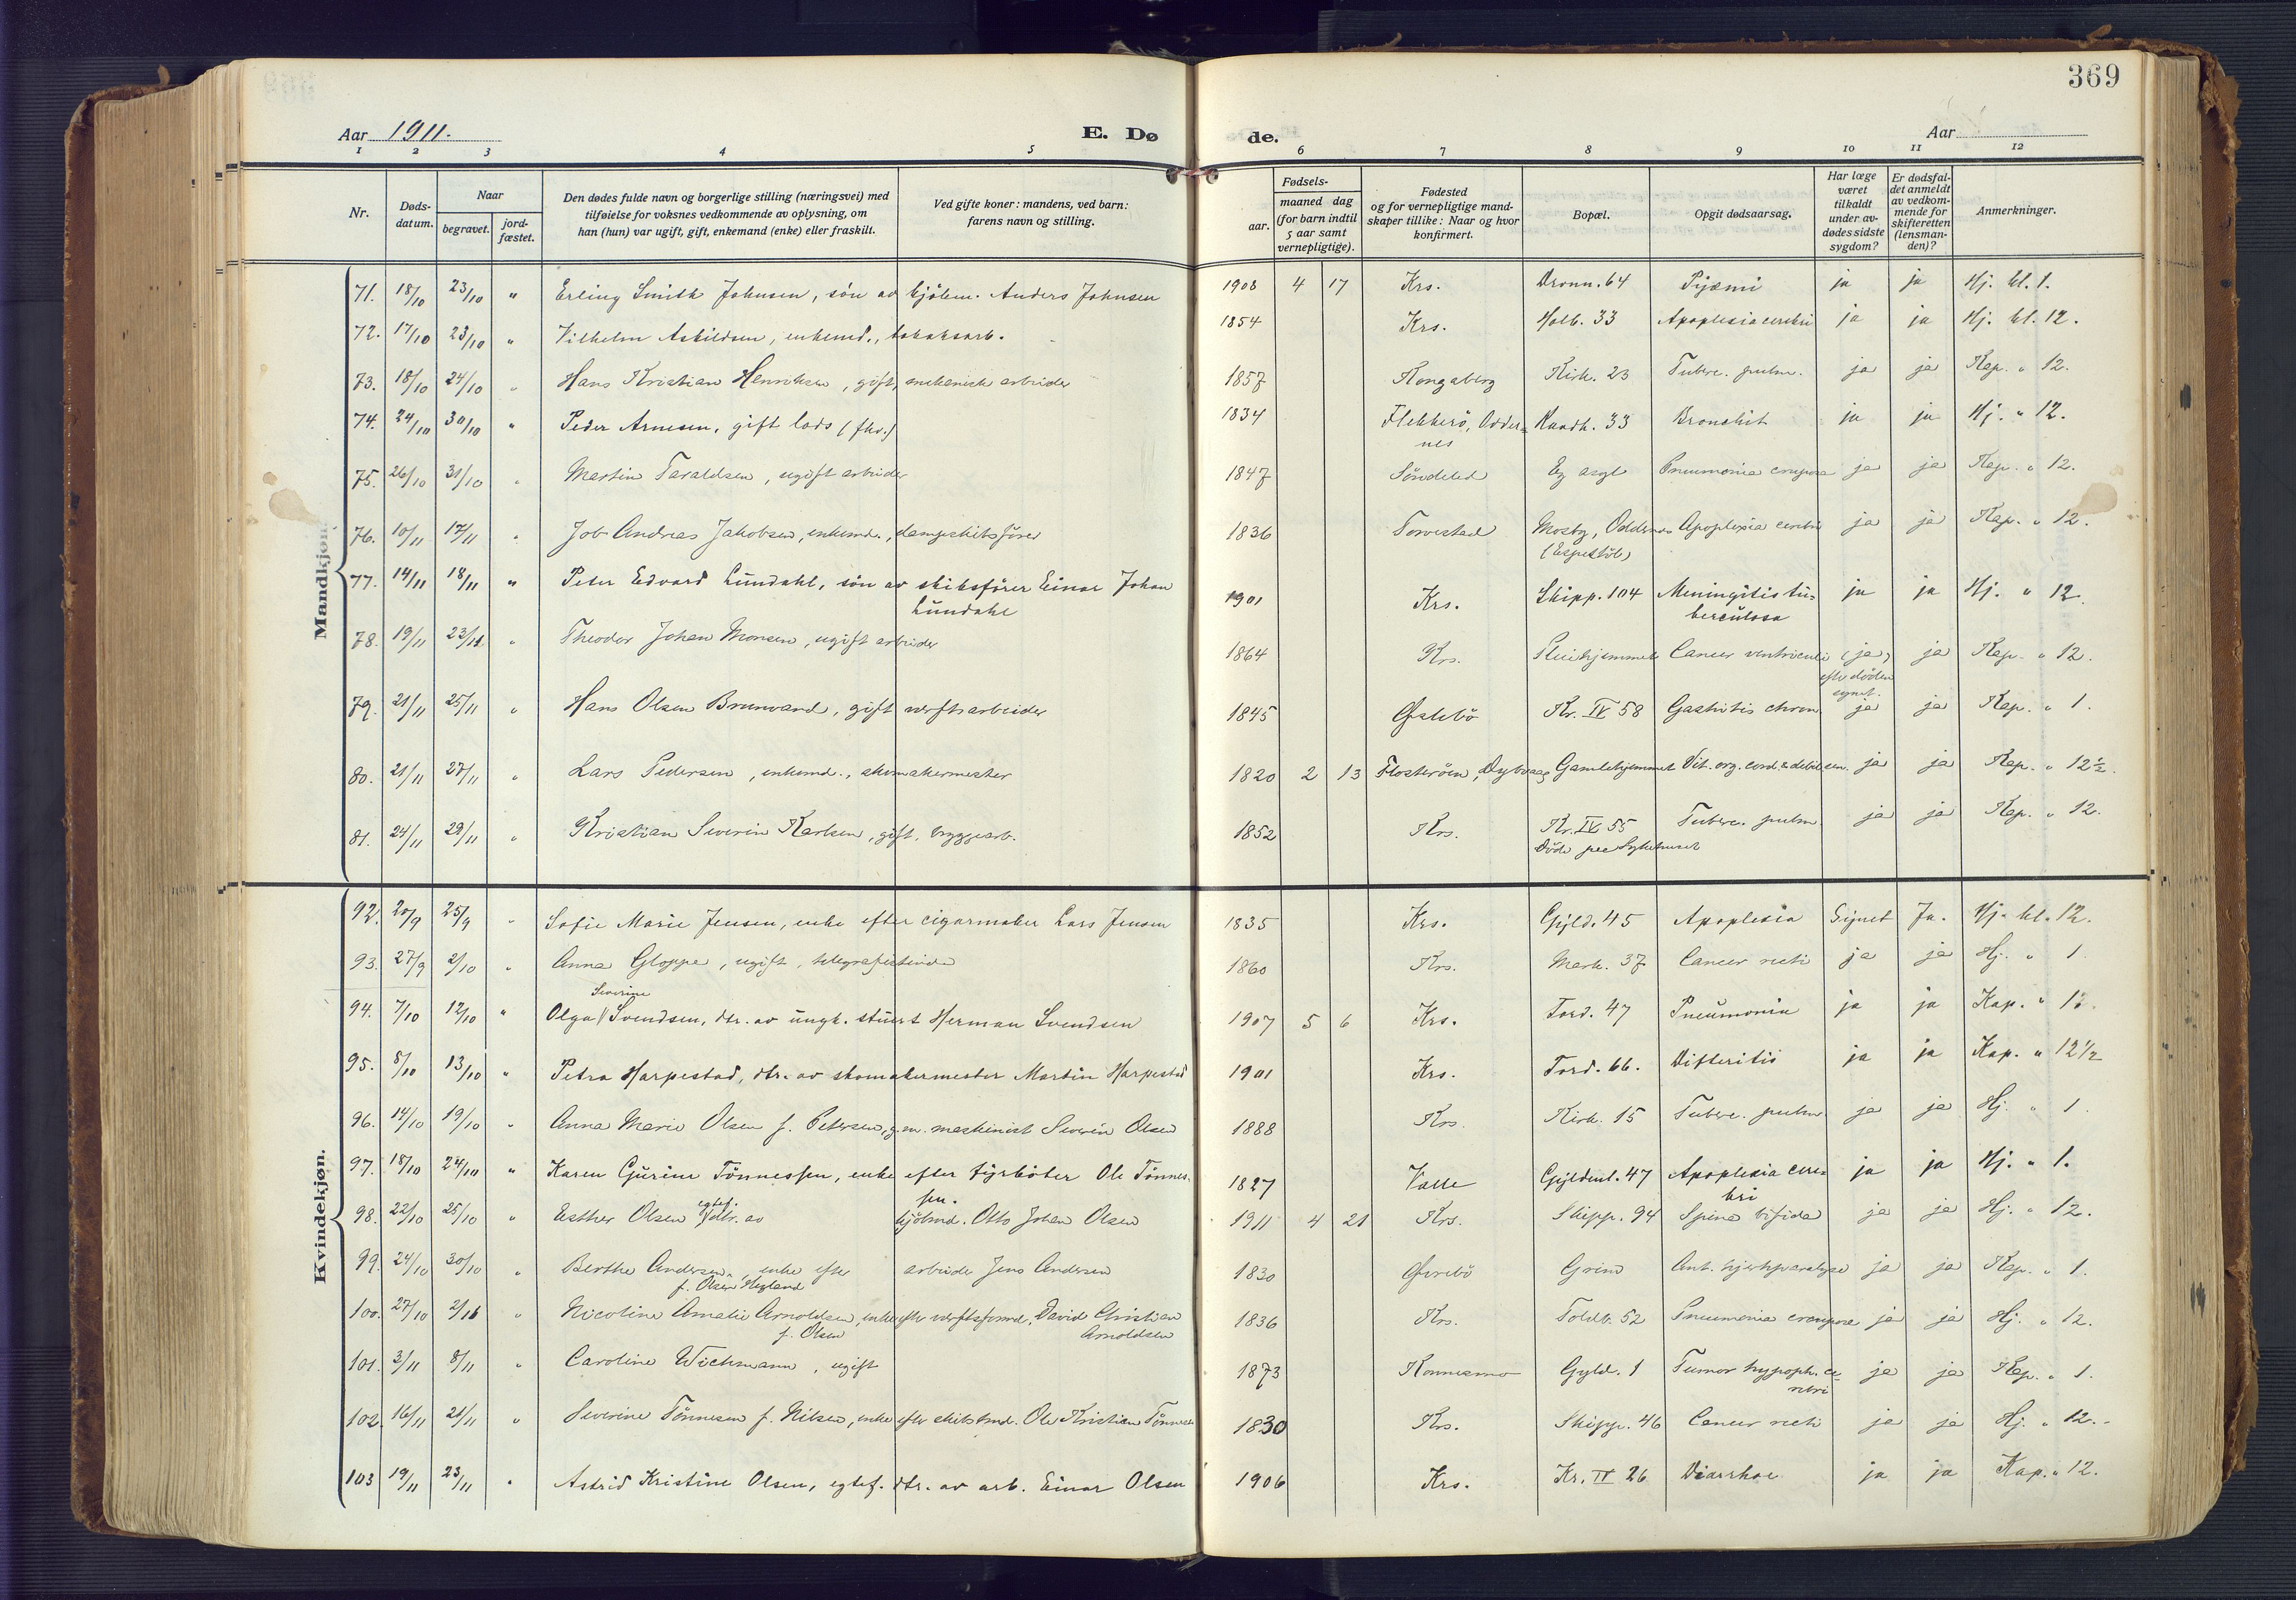 369
Aar 1911. E. Dø de. Aar
1 2 3 4 5 6 7 8 9 10 11 12
Nr. Døds-datum. Naar begravet. jord-fæstet. Den dødes fulde navn og borgerlige stilling (næringsvei) med tilføielse for voksnes vedkommende av oplysning, om han (hun) var ugift, gift, enkemand (enke) eller fraskilt. Ved gifte koner: mandens, ved barn: farens navn og stilling. Fødsels- aar. maaned dag (for barn indtil 5 aar samt vernepligtige). Fødested og for vernepligtige mandskaper tillike: Naar og hvor konfirmert. Bopæl. Opgit dødsaarsag. Har læge været tilkaldt under avdødes sidste sygdom? Er dødsfaldet anmeldt av vedkommende for skifteretten (lensmanden)? Anmerkninger.
Mandkjøn.
71. 18/10 23/10 " Erling Smith Johnsen, søn av kjøbm. Anders Johnsen 1908 4 17 Krs. Dronn. 64 Pyæmi ja ja Hj. kl. 1.
72. 17/10 23/10 " Vilhelm Askildsen, enkemd., tobaksarb. 1854 Krs. Holb. 33 Apoplexia cerebri ja ja Hj. kl. 12.
73. 18/10 24/10 " Hans Kristian Henriksen, gift, mekanisk arbeider 1857 Kongsberg Kirk. 23 Tuberc. pulm. ja ja Kap. " 12.
74. 24/10 30/10 " Peder Arnesen, gift lods (fhv.) 1834 Flekkerö, Oddernes Randk. 33 Bronchit ja ja Hj. " 12.
75. 26/10 31/10 " Martin Taraldsen, ugift arbeider 1847 Söndeled Eg asyl Pneumonia cruposa ja ja Kap. " 12.
76. 10/11 17/11 " Job Andreas Jakobsen, enkemd., dampskibsfører 1836 Torvestad Mosby, Oddernes Apoplexia cerebri ja ja Kap. " 12.
77. 14/11 18/11 " Peter Edvard Lundahl, søn av skibsfører Einar Johan Lundahl 1901 Krs. Skipp. 104 Meningitis tuberculosa ja ja Hj. " 12.
78. 19/11 23/11 " Theodor Johan Monsen, ugift arbeider 1864 Krs. Pleiehjemmet Cancer ventriculi (ja) efter döden synet. ja Kap. " 12.
79. 21/11 25/11 " Hans Olsen Brunvand, gift verftsarbeider 1845 Öslebö Kr. IV 58 Gastritis chron. ja ja Kap. " 1.
80. 21/11 27/11 " Lars Pedersen, enkemd., skomakermester 1820 2 13 Flosterøen, Dybvaag Gamlehjemmet Vit. org. cord. & debil. sen. ja ja Kap. " 12½.
81. 24/11 29/11 " Kristian Severin Karlsen, gift, bryggearb. 1852 Krs. Kr. IV 55 Döde paa Sykehuset Tuberc. pulm. ja ja Kap. " 12.
Kvindekjøn.
92. 20/9 25/9 " Sofie Marie Jensen, enke efter cigarmaker Lars Jensen 1835 Krs. Gyld. 45 Apoplexia Synet Ja. Hj. kl. 12.
93. 27/9 2/10 " Anna Gloppe, ugift, telegrafistinde 1860 Krs. Mark. 37 Cancer recti ja ja Hj. " 1
94. 7/10 12/10 " Olga Severine Svendsen, dtr. av ungk. stuert Herman Svendsen 1907 5 6 Krs. Tord. 47 Pneumonia ja ja Kap. "
95. 8/10 13/10 " Petra Harpestad, dtr. av skomakermester Martin Harpestad 1901 Krs. Tord. 66. Difteritis ja ja Kap. " 12½
96. 14/10 19/10 " Anna Marie Olsen f. Petersen, g.m. maskinist Severin Olsen 1888 Krs. Kirk. 15 Tuberc. pulm. ja ja Hj. " 1.
97. 18/10 24/10 " Karen Gurine Tönnessen, enke efter fyrböter Ole Tönnessen. 1827 Valle Gyldenl. 47 Apoplexia cerebri ja ja Hj. " 1.
98. 22/10 25/10 " Esther Olsen egtef. dtr. av kjöbmd. Otto Johan Olsen 1911 4 21 Krs. Skipp. 94 Spina bifida ja ja Hj. " 12.
99. 24/10 30/10 " Berthe Andersen, f. Olsen Hegland enke efter arbeider Jens Andersen 1830 Øvrebö Grim Ant. hjerteparalyse ja ja Kap. " 1.
100. 27/10 2/11 " Nicoline Amalie Arnoldsen, f. Olsen enke efter verftsformd. David Christian Arnoldsen 1836 Krs. Toldb. 52 Pneumonia crouposa ja ja Hj. " 12.
101. 3/11 8/11 " Caroline Wichmann, ugift 1873 Konnesmo Gyld. 1 Tumor hypoph. cerebri ja ja Kap. " 1.
102. 16/11 21/11 " Severine Tönnesen f. Nilsen, enke efter skibstmd. Ole Kristian Tönnesen 1830 Krs. Skipp. 46 Cancer recti ja ja Hj. " 12.
103 19/11 23/11 " Astrid Kristine Olsen, egtef. dtr. av arb. Einar Olsen 1906 Krs. Kr. IV 26 Diarrhoe ja ja Kap. " 12.